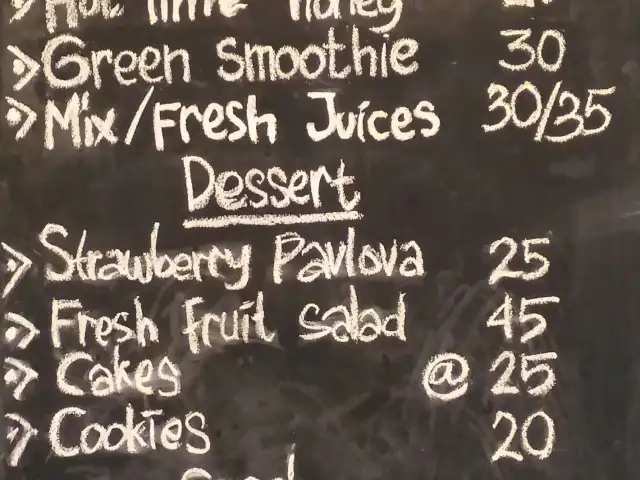 Hot lime honey
Green Smoothie 30
Mix/Fresh Juices 30/35
Dessert
Strawberry Pavlova 25
Fresh fruit salad 45
Cakes @ 25
Cookies 20